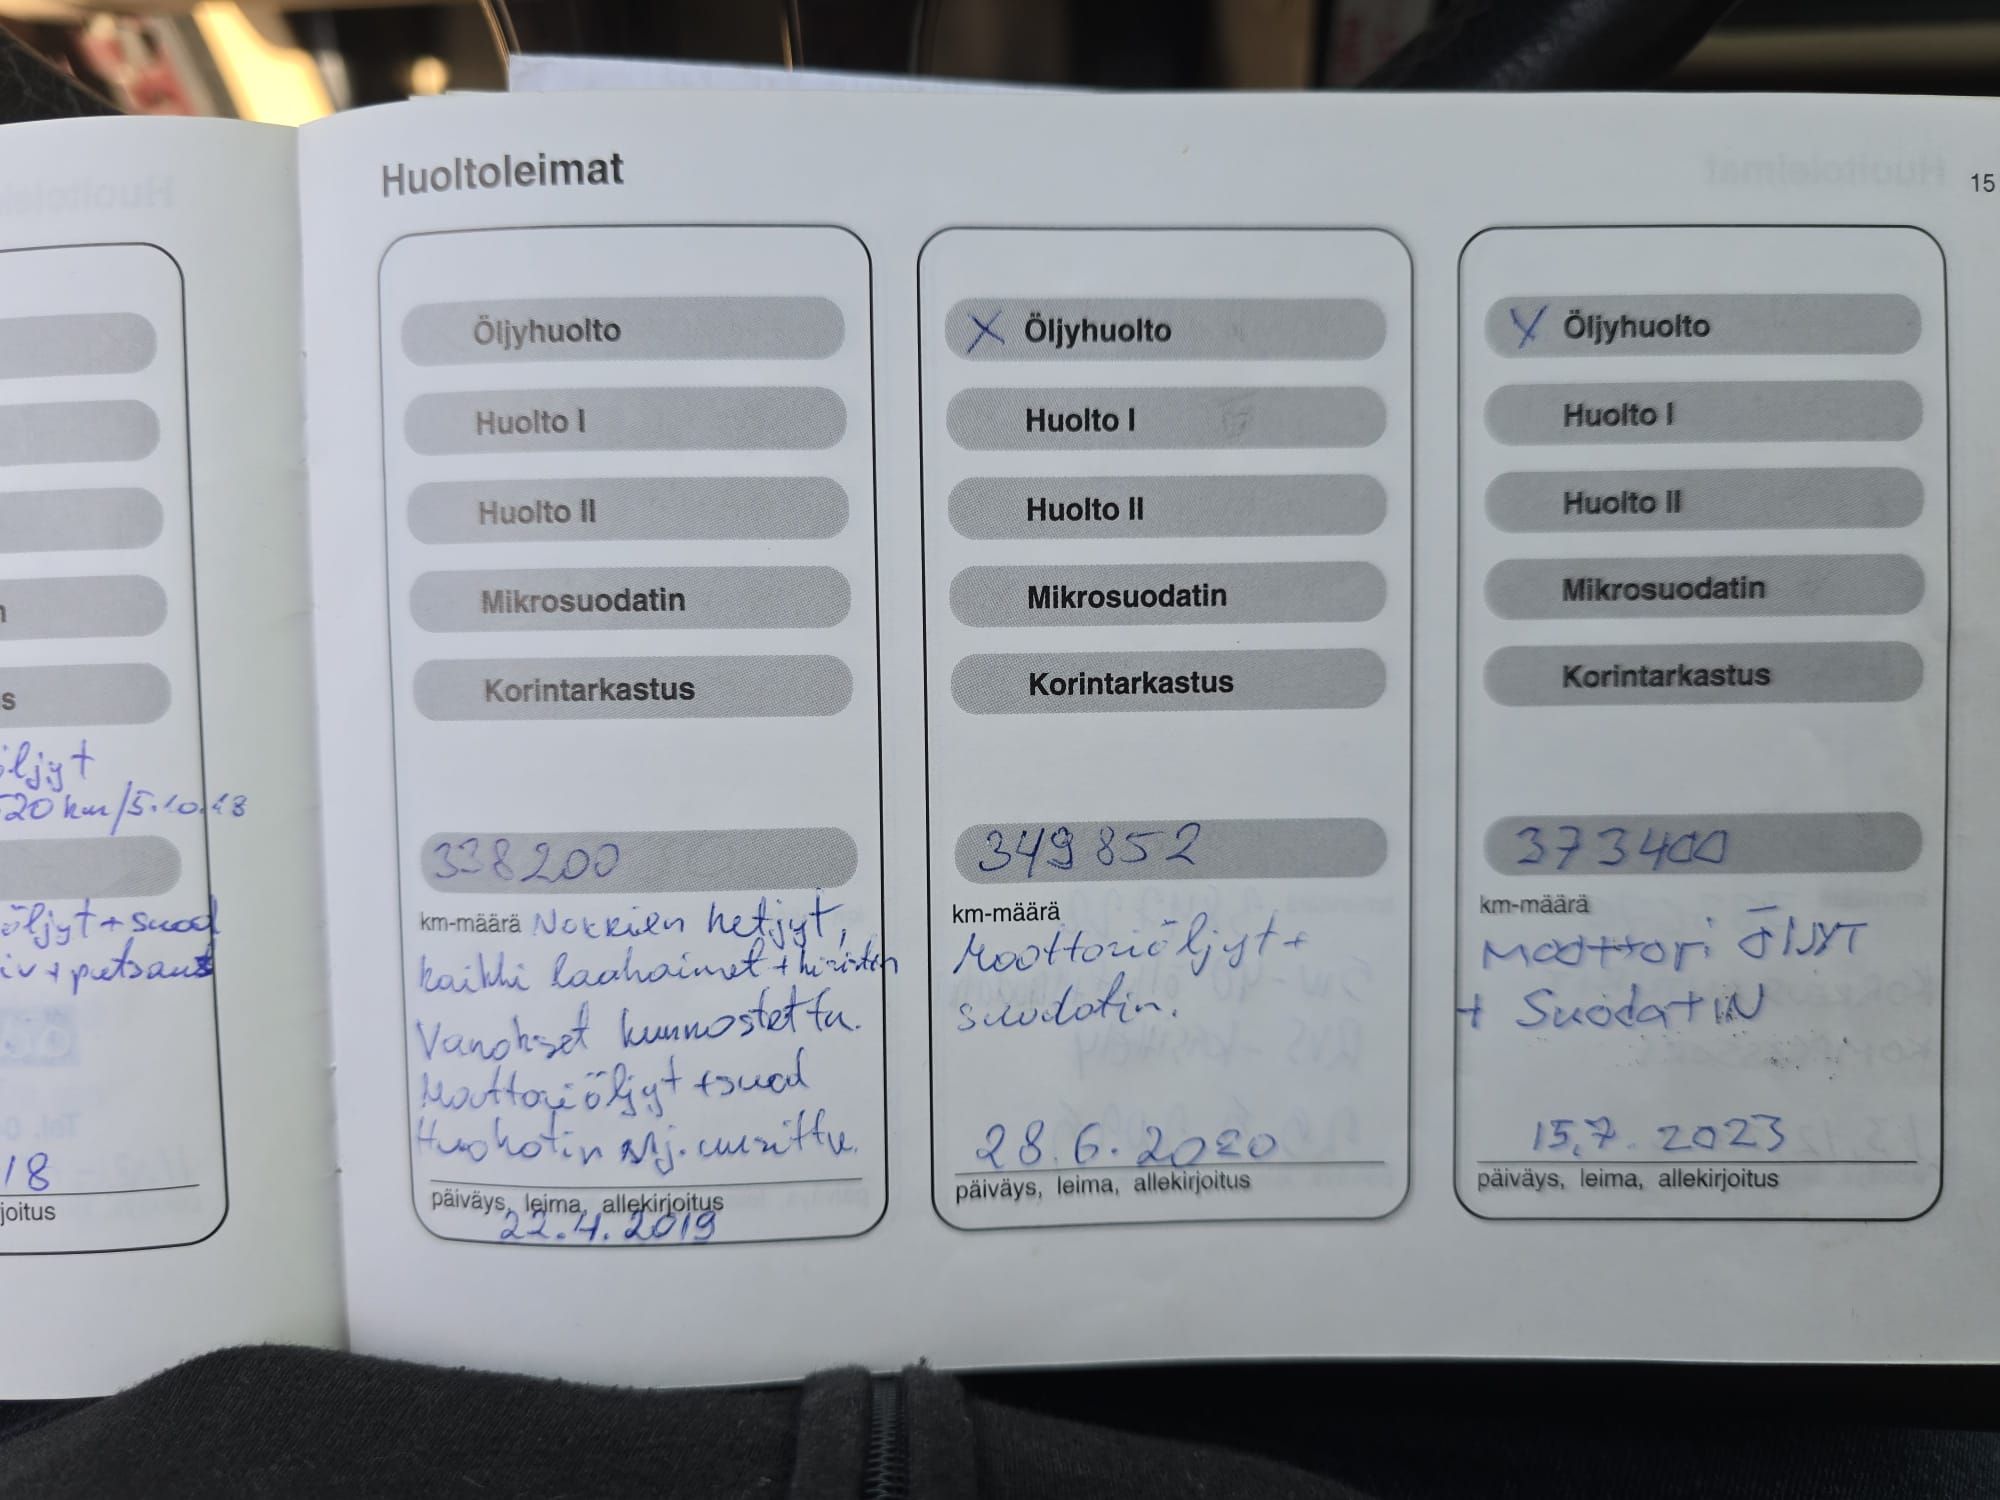 Huoltoleimat
15
s
öljyt
20 km/5.10.18
öljyt + suod
18
joitus
Öljyhuolto
Huolto I
Huolto II
Mikrosuodatin
Korintarkastus
338200
km-määrä Nokkien ketjyt,
kaikki laahaimet + kiristin
Vanokset kunnostettu.
Moottoriöljyt + suod
uusittu.
päiväys, leima, allekirjoitus
22.4.2019
X Öljyhuolto
Huolto I
Huolto II
Mikrosuodatin
Korintarkastus
349852
km-määrä
Moottoriöljyt +
suodatin.
28.6.2020
päiväys, leima, allekirjoitus
X Öljyhuolto
Huolto I
Huolto II
Mikrosuodatin
Korintarkastus
373400
km-määrä
Moottori ÖlJYT
+ SuodatiN
15.7.2023
päiväys, leima, allekirjoitus